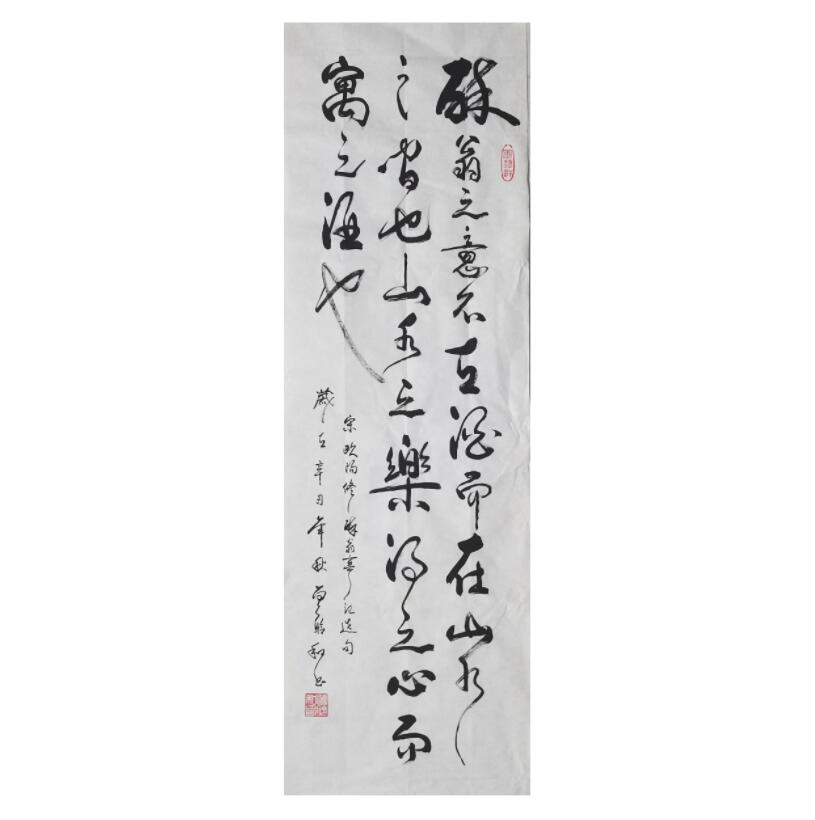 醉翁之意不在酒而在山水
之间也山水之樂得之心而
寓之酒也
宋欧陽修醉翁亭记选句
歲在辛丑年秋 和书